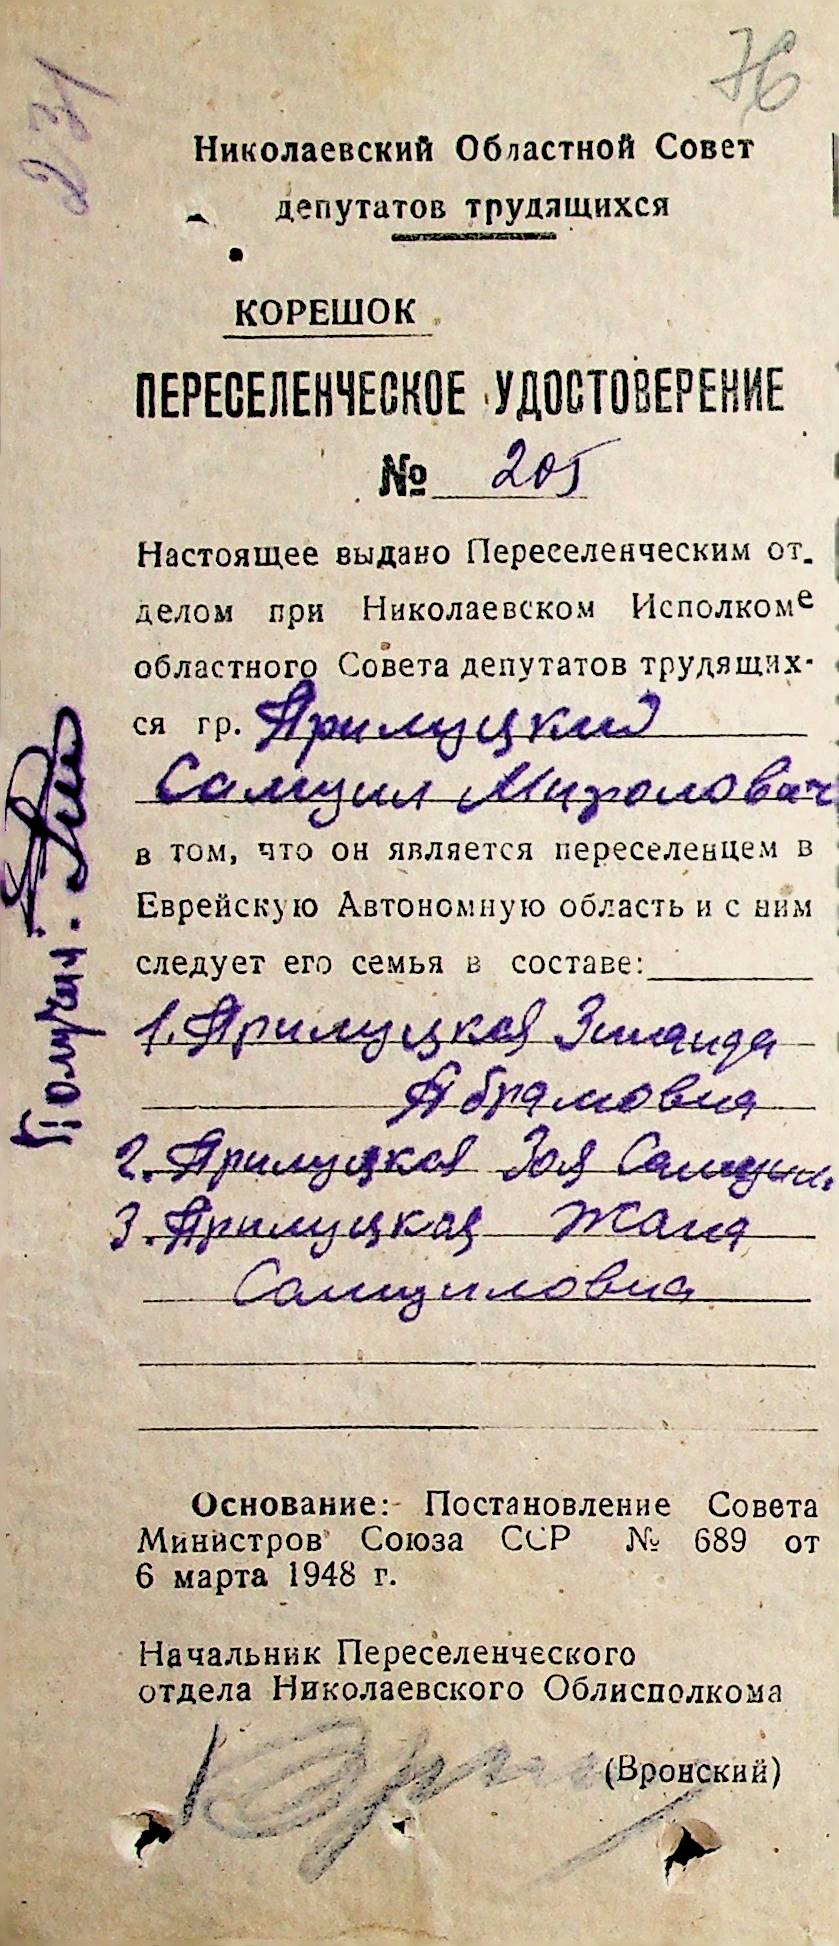 76
231
Николаевский Областной Совет
депутатов трудящихся
КОРЕШОК
ПЕРЕСЕЛЕНЧЕСКОЕ УДОСТОВЕРЕНИЕ
№ 205
Настоящее выдано Переселенческим от.
делом при Николаевском Исполкоме
областного Совета депутатов трудящих-
ся гр. Прилуцкий
Самуил Миролович
в том, что он является переселенцем в
Еврейскую Автономную область и с ним
следует его семья в составе:
1. Прилуцкая Зинаида
Абрамовна
2. Прилуцкая Зоя Самуил.
3. Прилуцкая Жана
Самуиловна
Основание: Постановление Совета
Министров Союза ССР № 689 от
6 марта 1948 г.
Начальник Переселенческого
отдела Николаевского Облисполкома
(Вронский)
Получил.